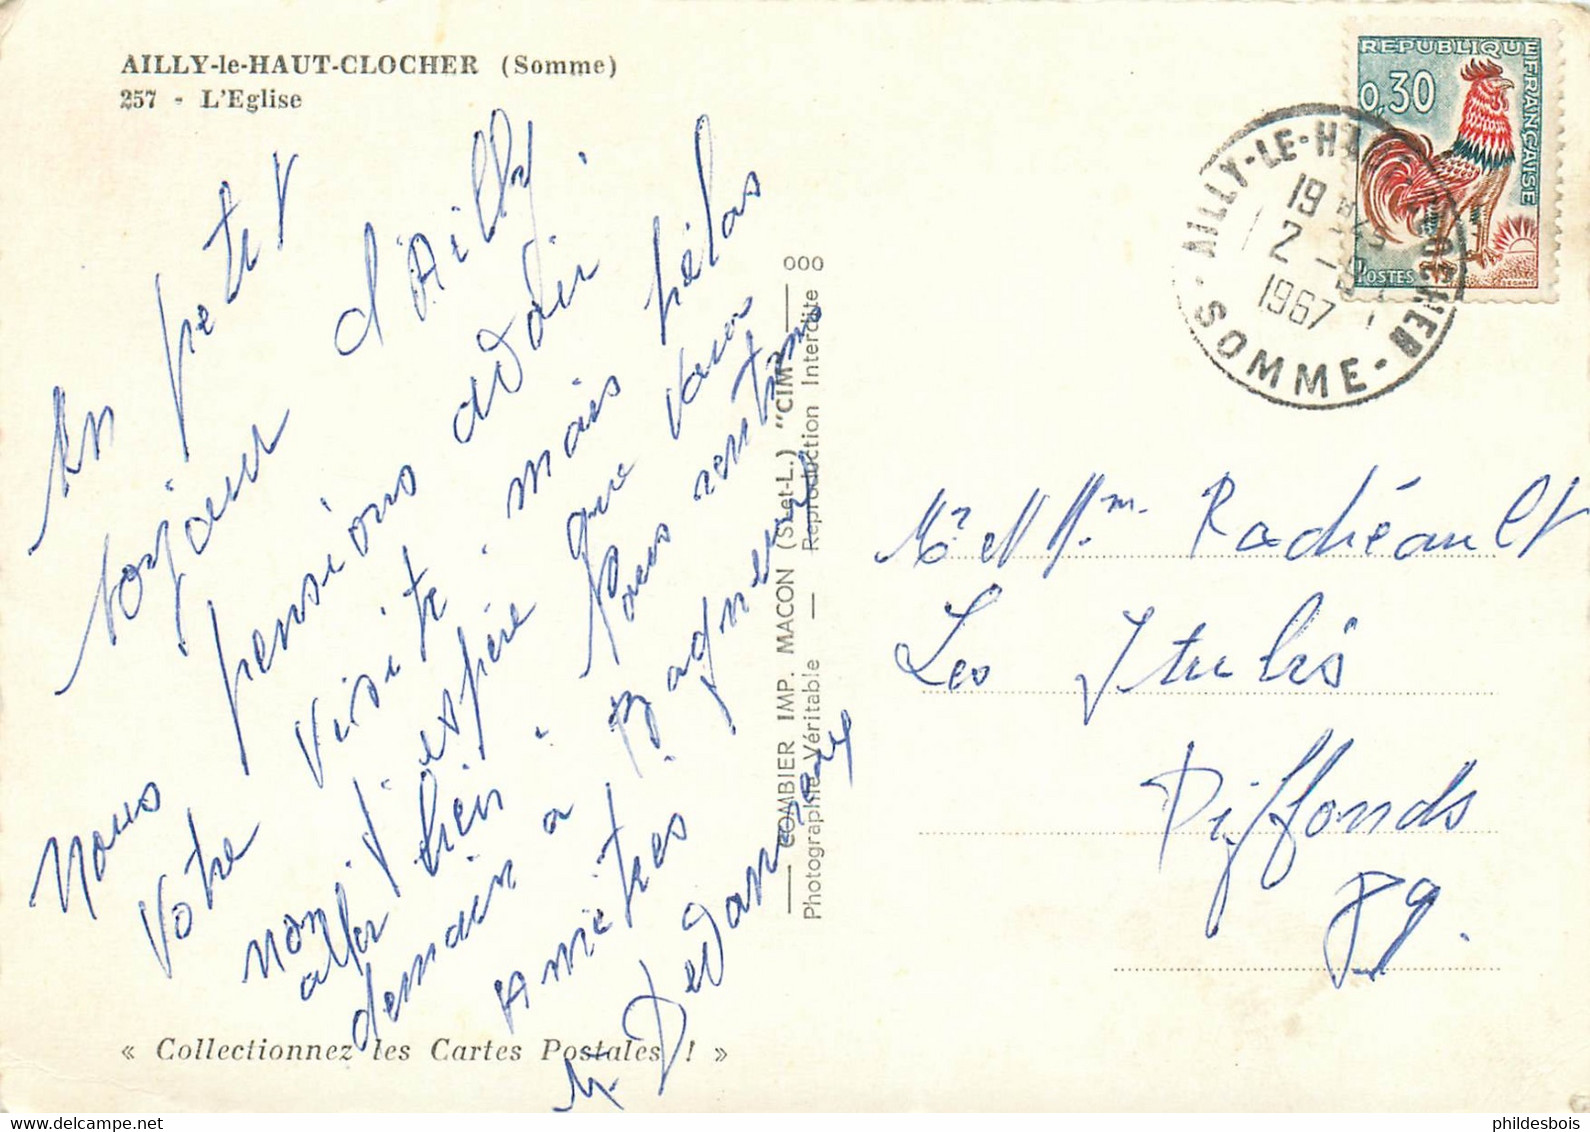 AILLY-le-HAUT-CLOCHER (Somme)
257 - L'Eglise
Un petit
bonjour d'Ailly.
Nous pensions avoir
votre visite mais hélas
non. J'espère que vous
allez bien. Nous rentrons
demain à Bagneux
Amitiés
« Collectionnez les Cartes Postales ! »
COMBIER IMP. MACON (S.-et-L.) "CIM" 000
Photographie Véritable — Reproduction Interdite
REPUBLIQUE FRANÇAISE
0,30
POSTES
AILLY-LE-HAUT-CLOCHER
19 H
2 -
1967
SOMME
Mr et Mme
Les
Piffonds
89.
phildesbois